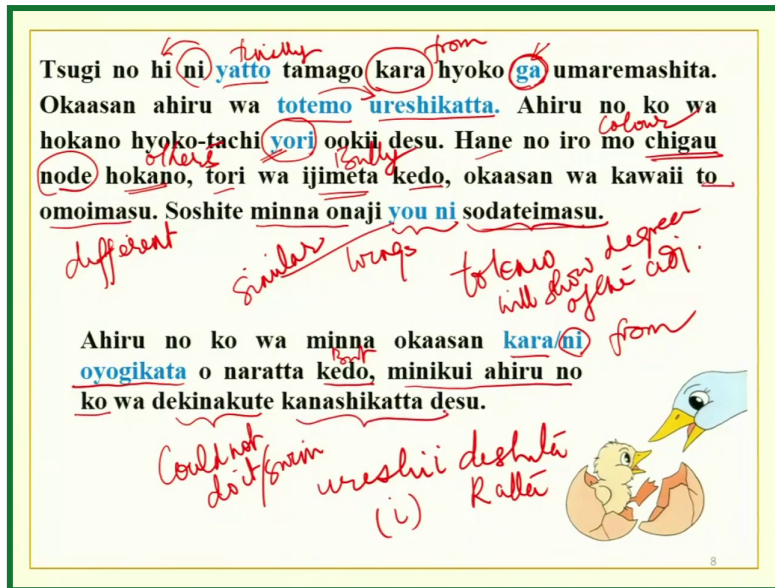 finally
from
Tsugi no hi ni yatto tamago kara hyoko ga umaremashita.
Okaasan ahiru wa totemo ureshikatta. Ahiru no ko wa
colour
hokano hyoko-tachi yori ookii desu. Hane no iro mo chigau
others
Bully
node hokano, tori wa ijimeta kedo, okaasan wa kawaii to
omoimasu. Soshite minna onaji you ni sodateimasu.
different
similar
wings
totemo
will show degree
of the adj.
Ahiru no ko wa minna okaasan kara/ni
from
But
oyogikata o naratta kedo, minikui ahiru no
ko wa dekinakute kanashikatta desu.
Could not
do it/swim
ureshii deshita
(i)
Katta
8